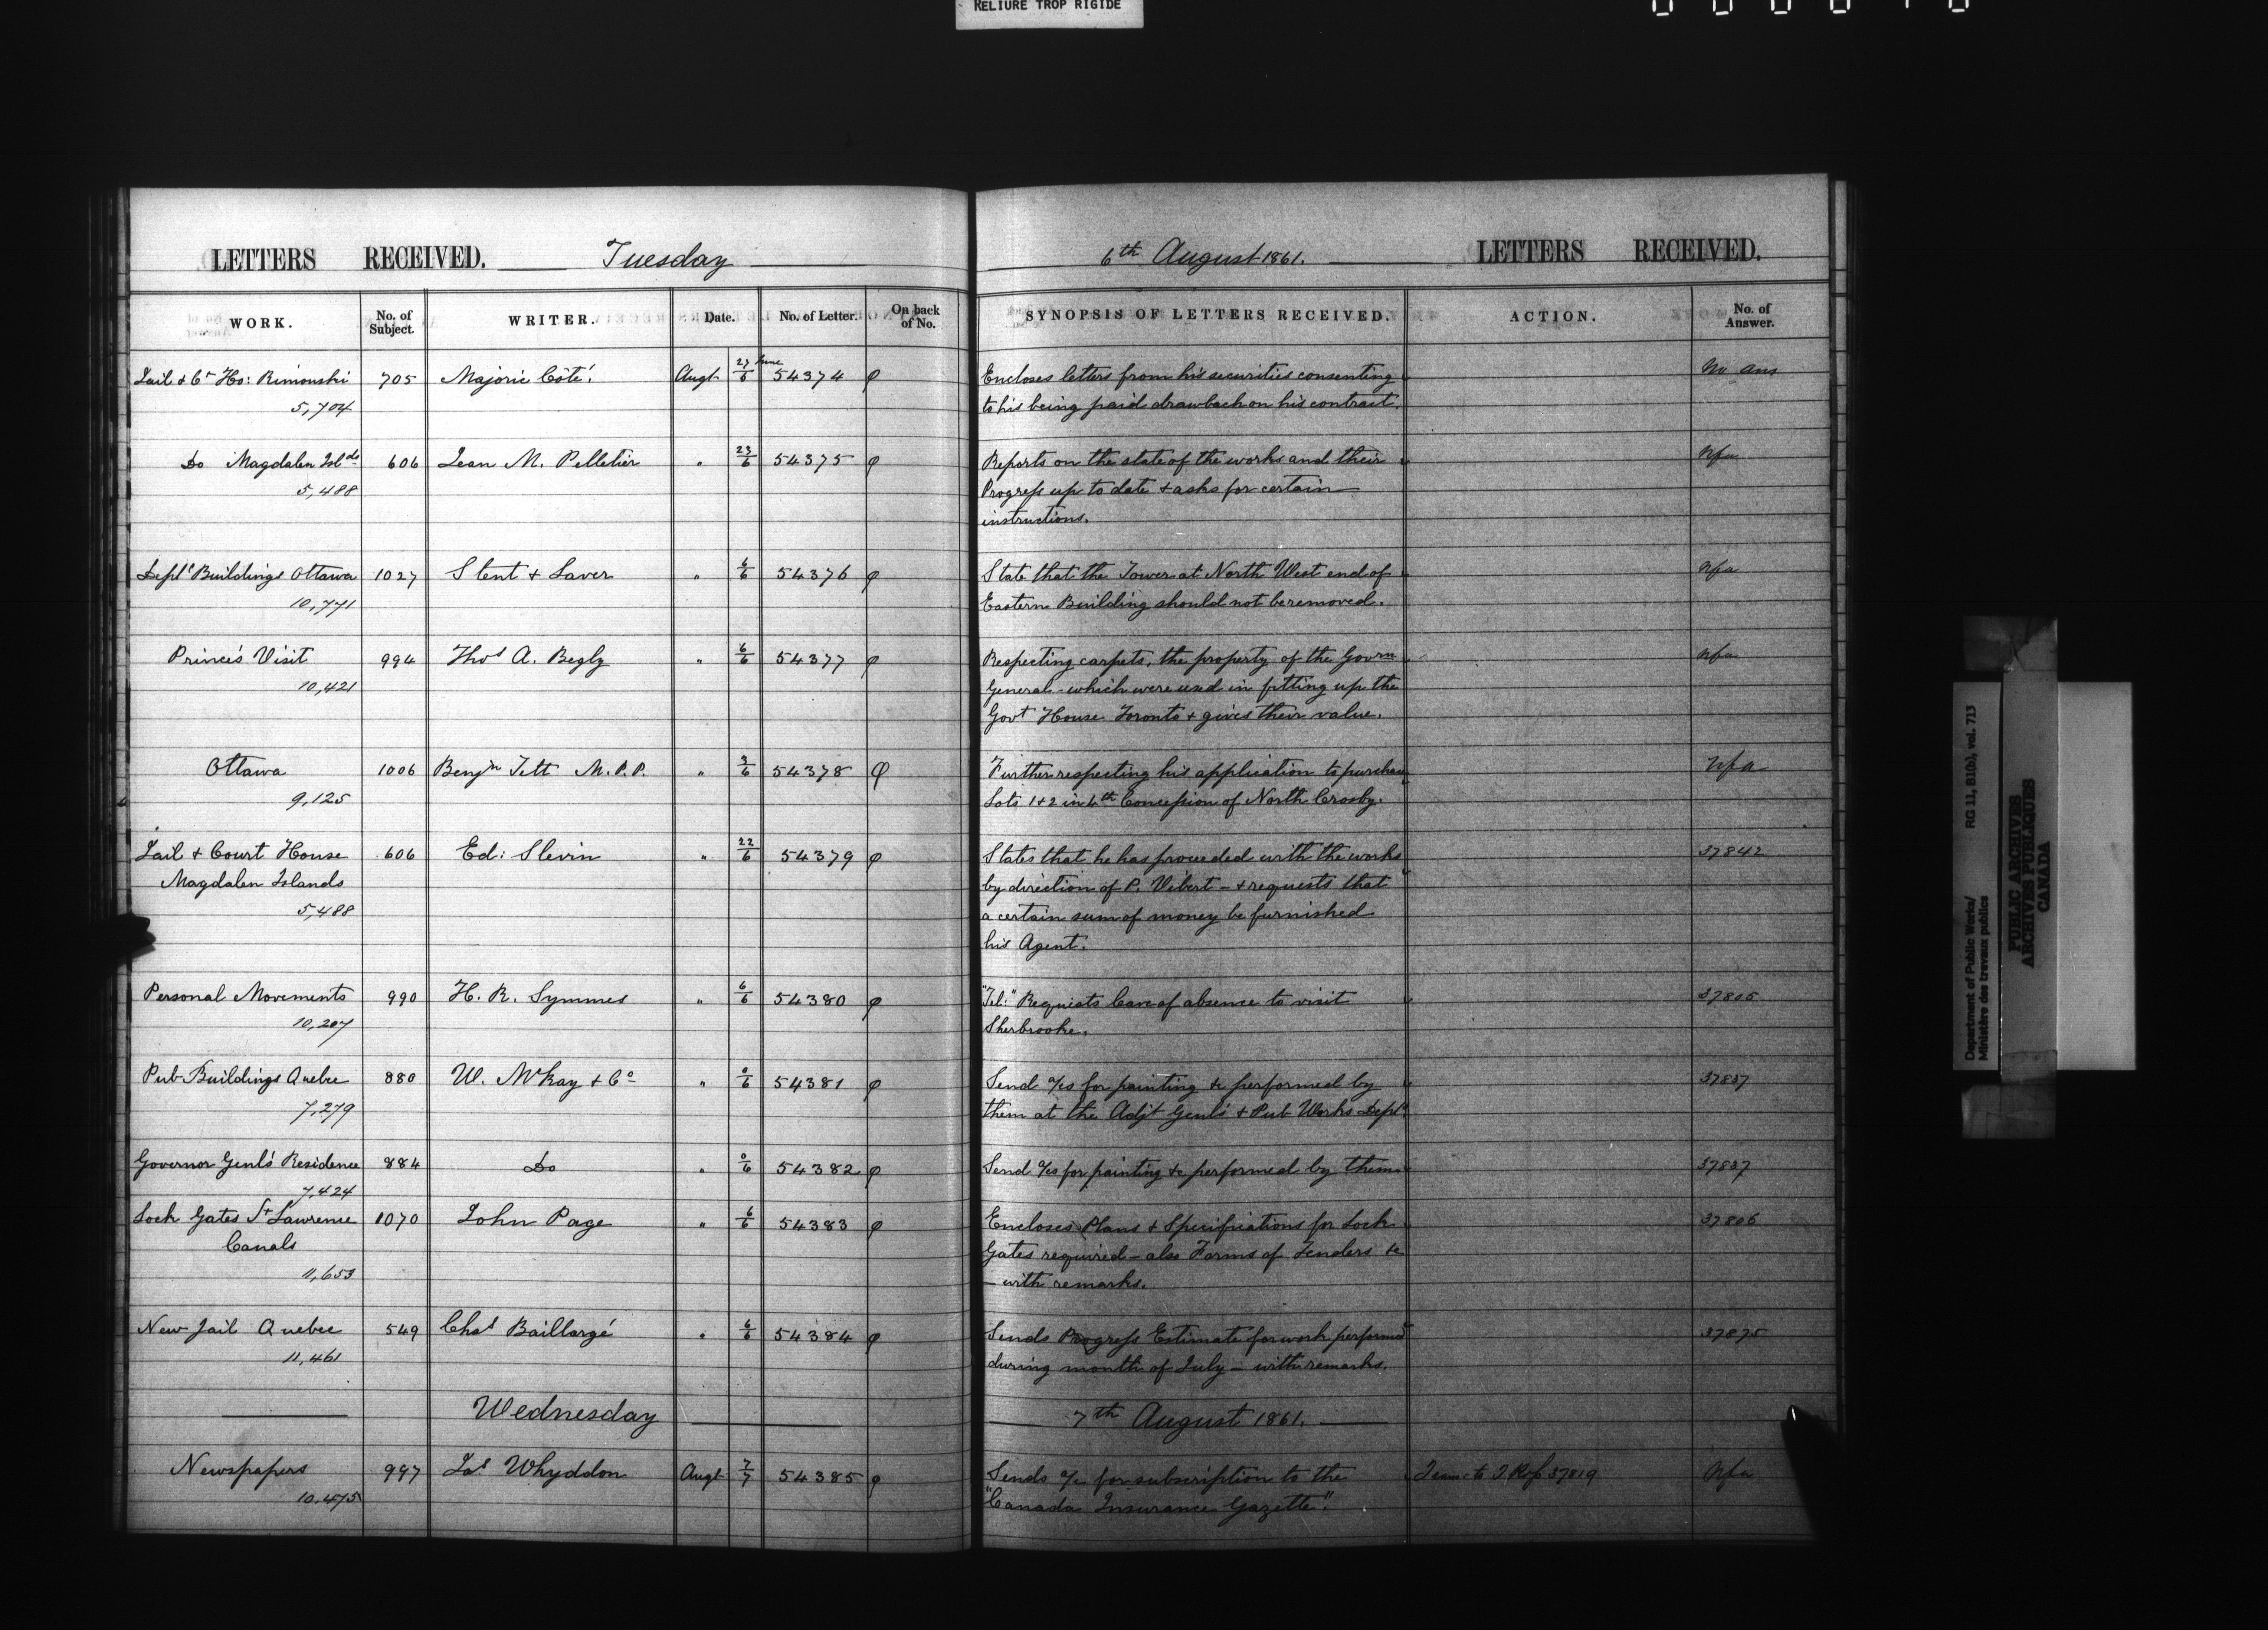 RELIURE TROP RIGIDE
LETTERS RECEIVED. Tuesday 6th August 1861. LETTERS RECEIVED.
WORK. No. of Subject. WRITER. Date. No. of Letter. On back of No. SYNOPSIS OF LETTERS RECEIVED. ACTION. No. of Answer.
Jail & Ct Ho: Rimouski 705 Majoric Côté. Augt 27/6 June 54374 φ Encloses letters from his securities consenting No ans
5,704 to his being paid drawback on his contract.
Do Magdalen Islds 606 Jean M. Pelletier " 23/6 54375 φ Reports on the state of the works and their Nfa
5,488 Progress up to date & asks for certain
instructions.
Deptl Buildings Ottawa 1027 Stent & Laver " 6/6 54376 φ State that the Tower at North West end of Nfa
10,771 Eastern Building should not be removed.
Prince's Visit 994 Thos A. Begly " 6/6 54377 φ Respecting carpets, the property of the Govrn Nfa
10,421 General - which were used in fitting up the
Govt House Toronto & gives their value.
Ottawa 1006 Benjn Tett M.P.P. " 3/6 54378 φ Further respecting his application to purchase Nfa
9,125 Lots 1 & 2 in 4th Concession of North Crosby.
Jail & Court House 606 Ed: Slevin " 22/6 54379 φ States that he has proceeded with the works 37842
Magdalen Islands by direction of P. Vibert - & requests that
5,488 a certain sum of money be furnished
his Agent.
Personal Movements 990 H. R. Symmes " 6/6 54380 φ "Tel:" Requests leave of absence to visit 37805
10,207 Sherbrooke.
Pub Buildings Quebec 880 W. McKay & Co " 0/6 54381 φ Send a/cs for painting &c performed by 37837
7,279 them at the Adjt Genl's & Pub Works Depts
Governor Genl's Residence 884 Do " 0/6 54382 φ Send a/cs for painting &c performed by them 37837
7,424
Lock Gates St Lawrence 1070 John Page " 6/6 54383 φ Encloses Plans & Specifications for Lock 37806
Canals Gates required - also Forms of Tenders &c
11,653 - with remarks.
New Jail Quebec 549 Chas Baillargé " 6/6 54384 φ Sends Progress Estimate for work performed 37875
11,461 during month of July - with remarks.
Wednesday 7th August 1861.
Newspapers 997 Jas Whyddon Augt 7/7 54385 φ Sends a/c for subscription to the 37819 Nfa
10,475 "Canada Insurance Gazette".
Department of Public Works/ RG 11, B1(b), vol. 713
Ministère des travaux publics
PUBLIC ARCHIVES
ARCHIVES PUBLIQUES
CANADA